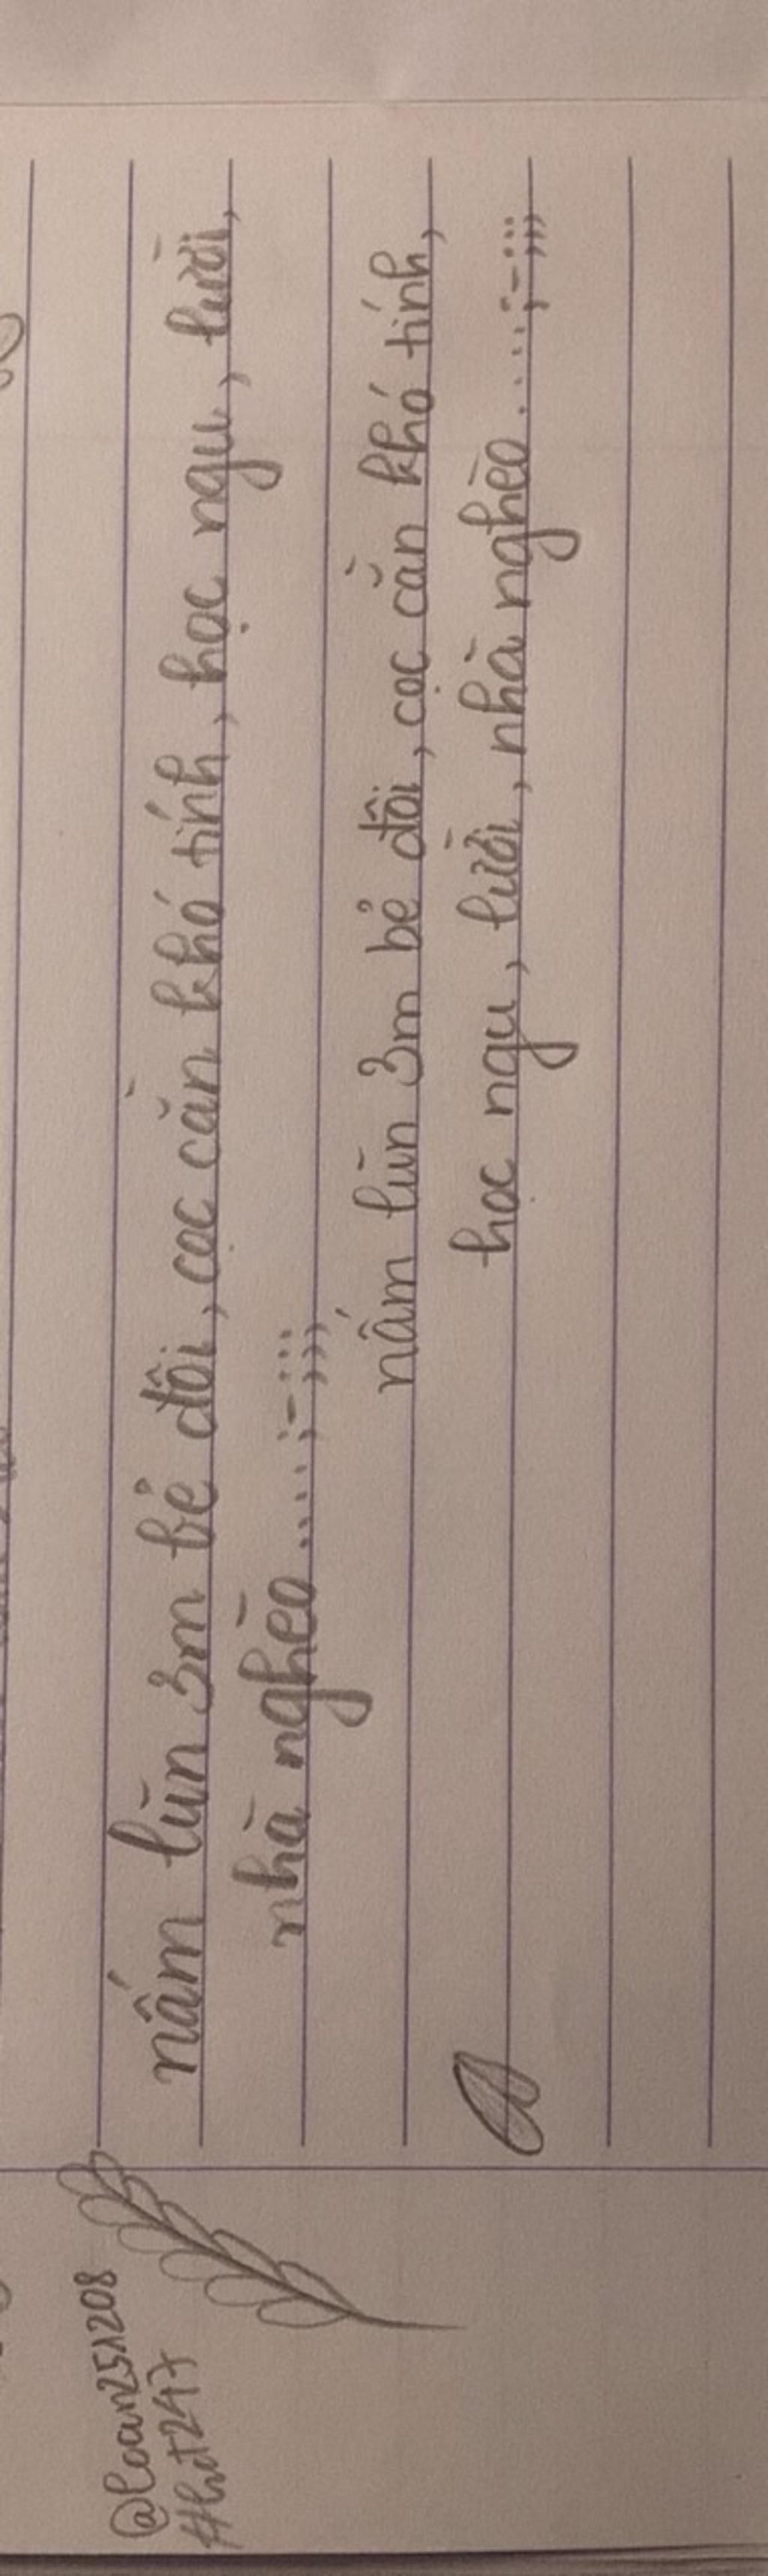 @loan251208
#hdt247
nấm lùn 3m bẻ đôi, cọc cằn khó tính, học ngu, lười,
nhà nghèo.....;-;;;
nấm lùn 3m bẻ đôi, cọc cằn khó tính,
học ngu, lười, nhà nghèo.....;-;;;